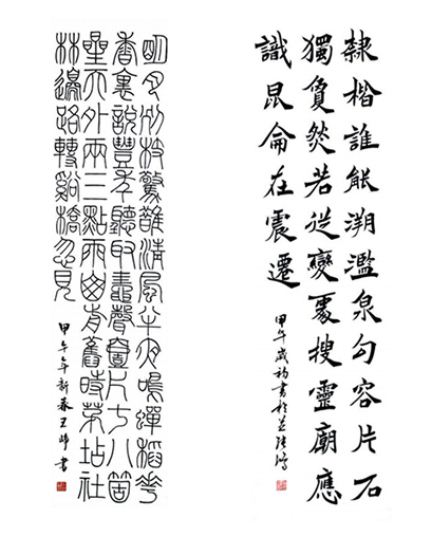 隸楷誰能溯濫泉勾容片石
獨夐然若從變裏搜靈廟應
識昆侖在震遷
甲午歲初書於
明月別枝驚鵲清風半夜鳴蟬稻花
香裏說豐年聽取蛙聲壹片七八箇
星天外兩三點雨山前舊時茅坫社
林邊路轉谿橋忽見
甲午年新春王峰書